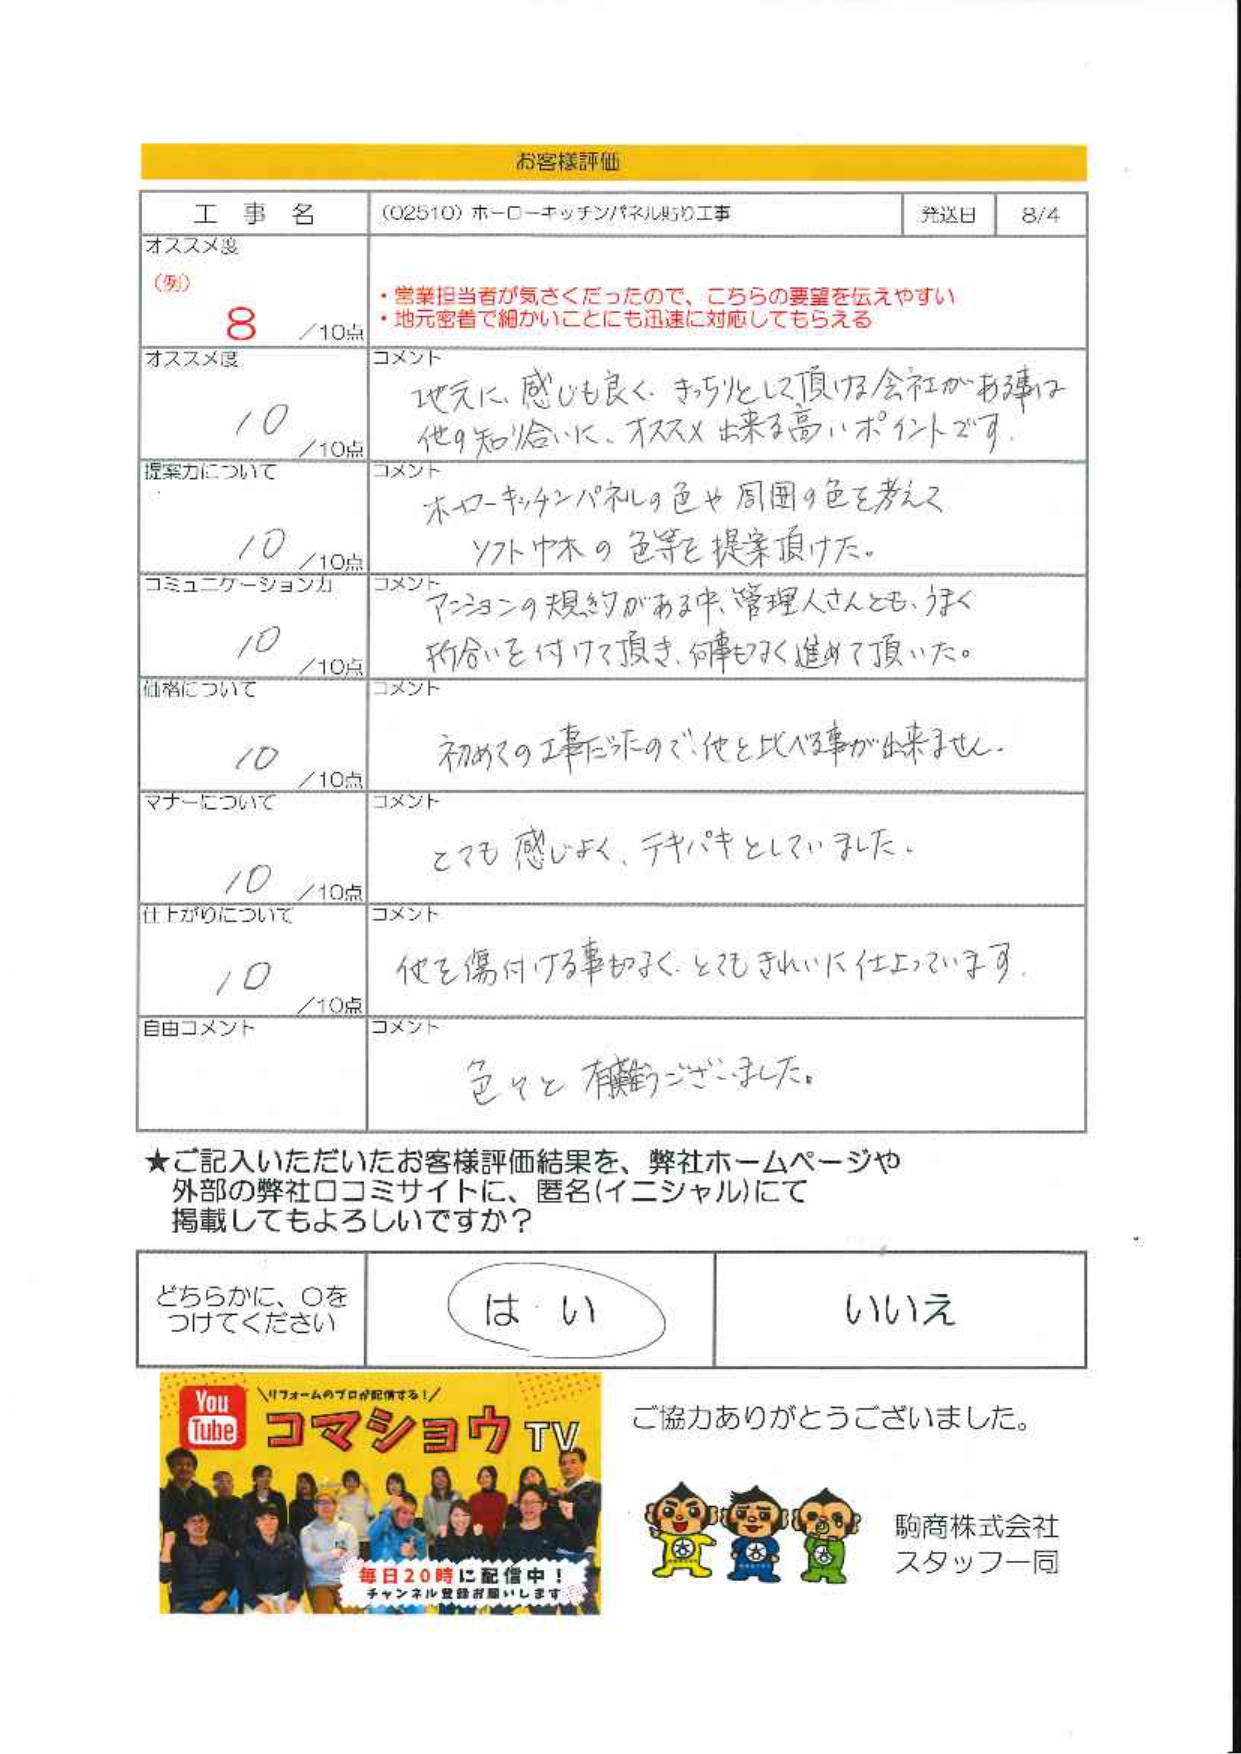 お客様評価
工事名
(02510) ホーローキッチンパネル貼り工事
発送日
8/4
オススメ度
(例)
8 /10点
・営業担当者が気さくだったので、こちらの要望を伝えやすい
・地元密着で細かいことにも迅速に対応してもらえる
オススメ度
10 /10点
コメント
地元に、感じも良く、きっちりとして頂ける会社がある事は
他の知り合いに、オススメ出来る高いポイントです。
提案力について
10 /10点
コメント
ホーローキッチンパネルの色や周囲の色を考えて
ソフト巾木の色等を提案頂けた。
コミュニケーション力
10 /10点
コメント
マンションの規約がある中、管理人さんとも、うまく
折合いを付けて頂き、何事もなく進めて頂いた。
価格について
10 /10点
コメント
初めての工事だったので、他と比べる事が出来ません。
マナーについて
10 /10点
コメント
とても感じよく、テキパキとしていました。
仕上がりについて
10 /10点
コメント
他を傷付ける事もなく、とてもきれいに仕上っています。
自由コメント
コメント
色々と有難うございました。
★ご記入いただいたお客様評価結果を、弊社ホームページや
外部の弊社口コミサイトに、匿名(イニシャル)にて
掲載してもよろしいですか?
どちらかに、〇を
つけてください
はい
いいえ
You
Tube
\リフォームのプロが配信する!/
コマショウTV
毎日20時に配信中!
チャンネル登録お願いします
ご協力ありがとうございました。
駒商株式会社
スタッフ一同